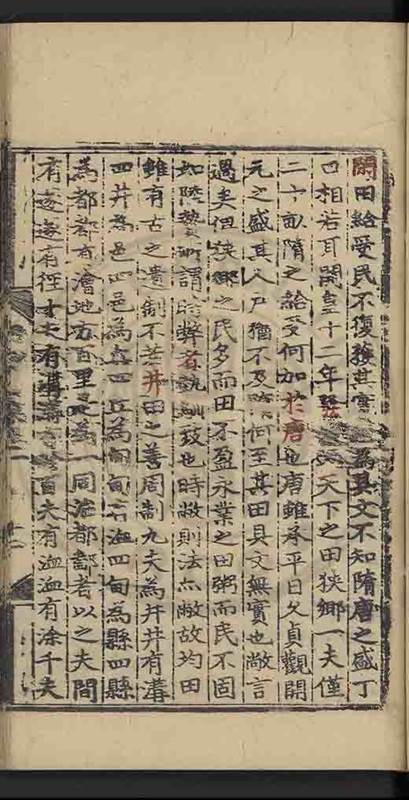 閱田給受民不復獲其實為具文不知隋唐之盛丁
口相若耳開皇十二年發天下之田狹鄉一夫僅
二十畝隋之給受何加於唐也唐雖承平日久貞觀開
元之盛其人戶猶不及隋何至其田具文無實也敝言
過矣但狹鄉之民多而田不盈永業之田粥而民不固
如陸贄所謂時弊者孰馴致也時敝則法亦敝故均田
雖有古之遺制不若井田之善周制九夫為井井有溝
四井為邑四邑為丘四丘為甸甸有洫四甸為縣四縣
為都都有澮地方百里是為一同治都鄙者以之夫間
有遂遂有徑十夫有溝溝百夫有洫洫有涂千夫